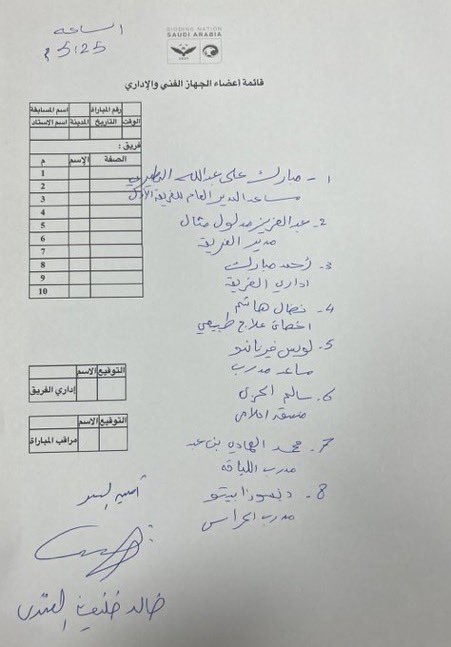 الساعة
5:25 م
BIDDING NATION
SAUDI ARABIA
قائمة أعضاء الجهاز الفني والإداري
اسم المسابقة
رقم المباراة
اسم الاستاد
المدينة
التاريخ
الوقت
فريق :
م
الإسم
الصفة
1
2
3
4
5
6
7
8
9
10
1- مبارك علي عبدالله المطيري
مساعد المدير العام للفريق الأول
2- عبدالعزيز مدلول
مدير الفريق
3- أحمد مبارك
اداري الفريق
4- نضال هاشم
اخصائي علاج طبيعي
5- لويس فيرناندو
مساعد مدرب
6- سالم
منسق اعلامي
7- محمد الهادي بن
مدرب اللياقة
8-
مدرب الحراس
الاسم
التوقيع
إداري الفريق
الاسم
التوقيع
مراقب المباراة
خالد خليفة